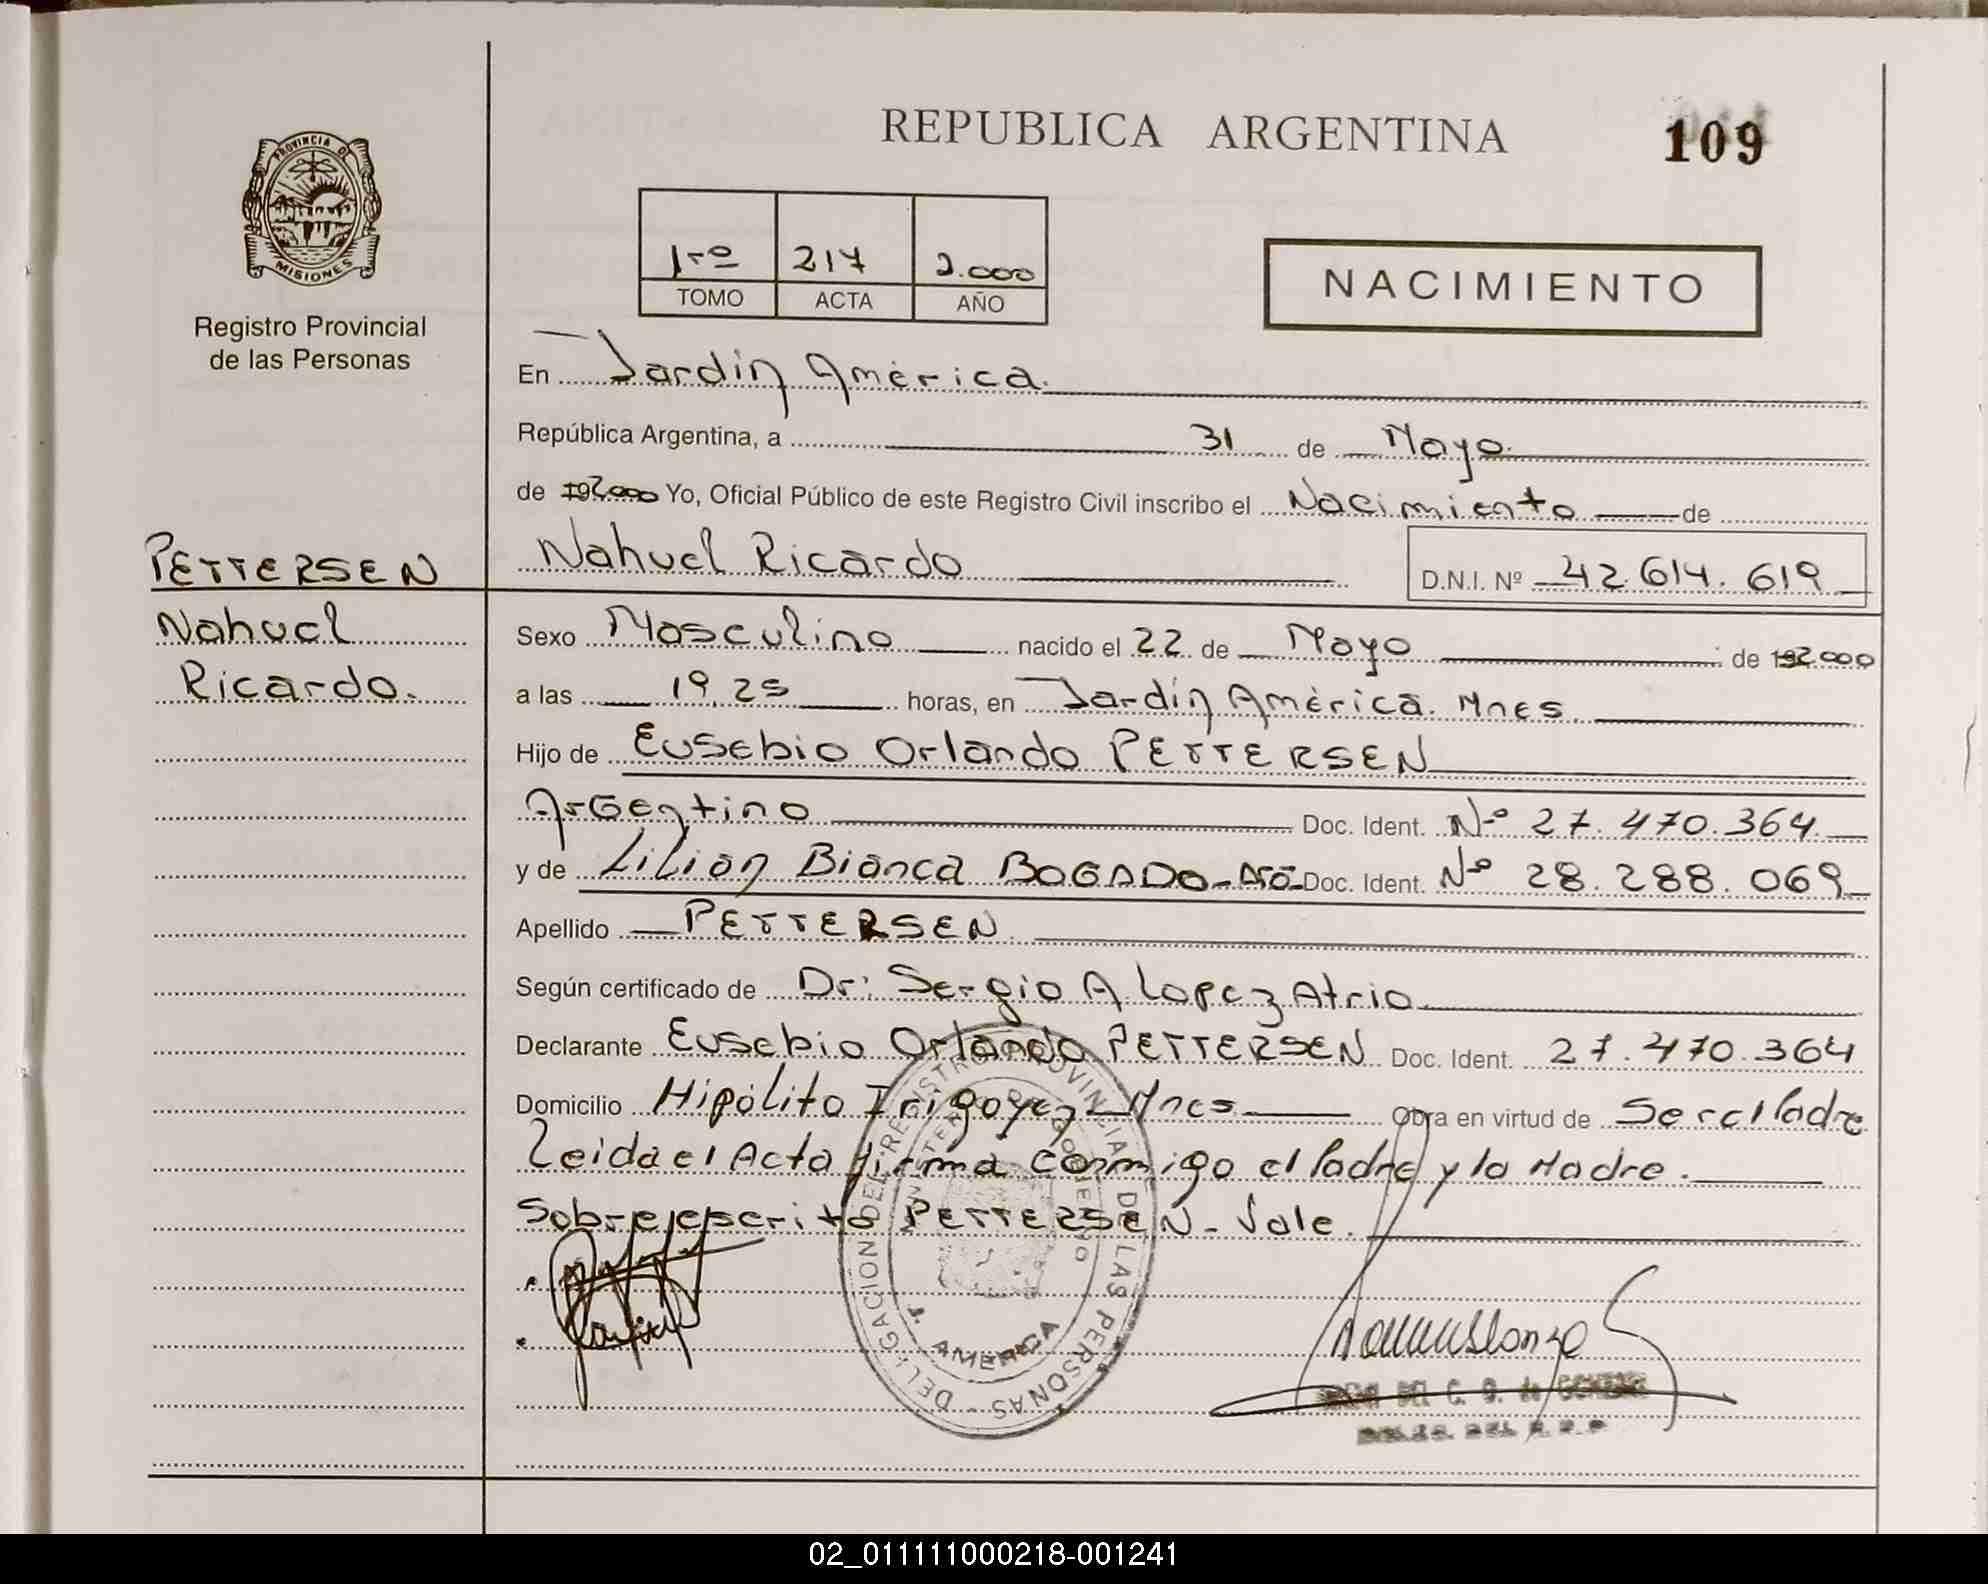 REPUBLICA ARGENTINA
109
PROVINCIA DE
MISIONES
Registro Provincial
de las Personas
1ro 217 2.000
TOMO ACTA AÑO
NACIMIENTO
En Jardín América.
República Argentina, a 31 de Mayo
de 192.000 Yo, Oficial Público de este Registro Civil inscribo el Nacimiento de
PETTERSEN
Nahuel Ricardo
D.N.I. Nº 42.614.619
Nahuel
Ricardo.
Sexo Masculino nacido el 22 de Mayo de 192.000
a las 19,25 horas, en Jardín América. Mnes.
Hijo de Eusebio Orlando PETTERSEN
Argentino Doc. Ident. Nº 27.470.364
y de Lilian Bianca BOGADO- Doc. Ident. Nº 28.288.069
Apellido PETTERSEN
Según certificado de Dr: Sergio A Lopez Atrio
Declarante Eusebio Orlando PETTERSEN Doc. Ident. 27.470.364
Domicilio Hipólito Irigoyen Mnes Obra en virtud de Ser el Padre
Leida el Acta firma conmigo el Padre y la Madre.
Sobre escrito PETTERSEN - Vale.
DELEGACION DEL REGISTRO PROVINCIAL DE LAS PERSONAS
AMERICA
02_011111000218-001241